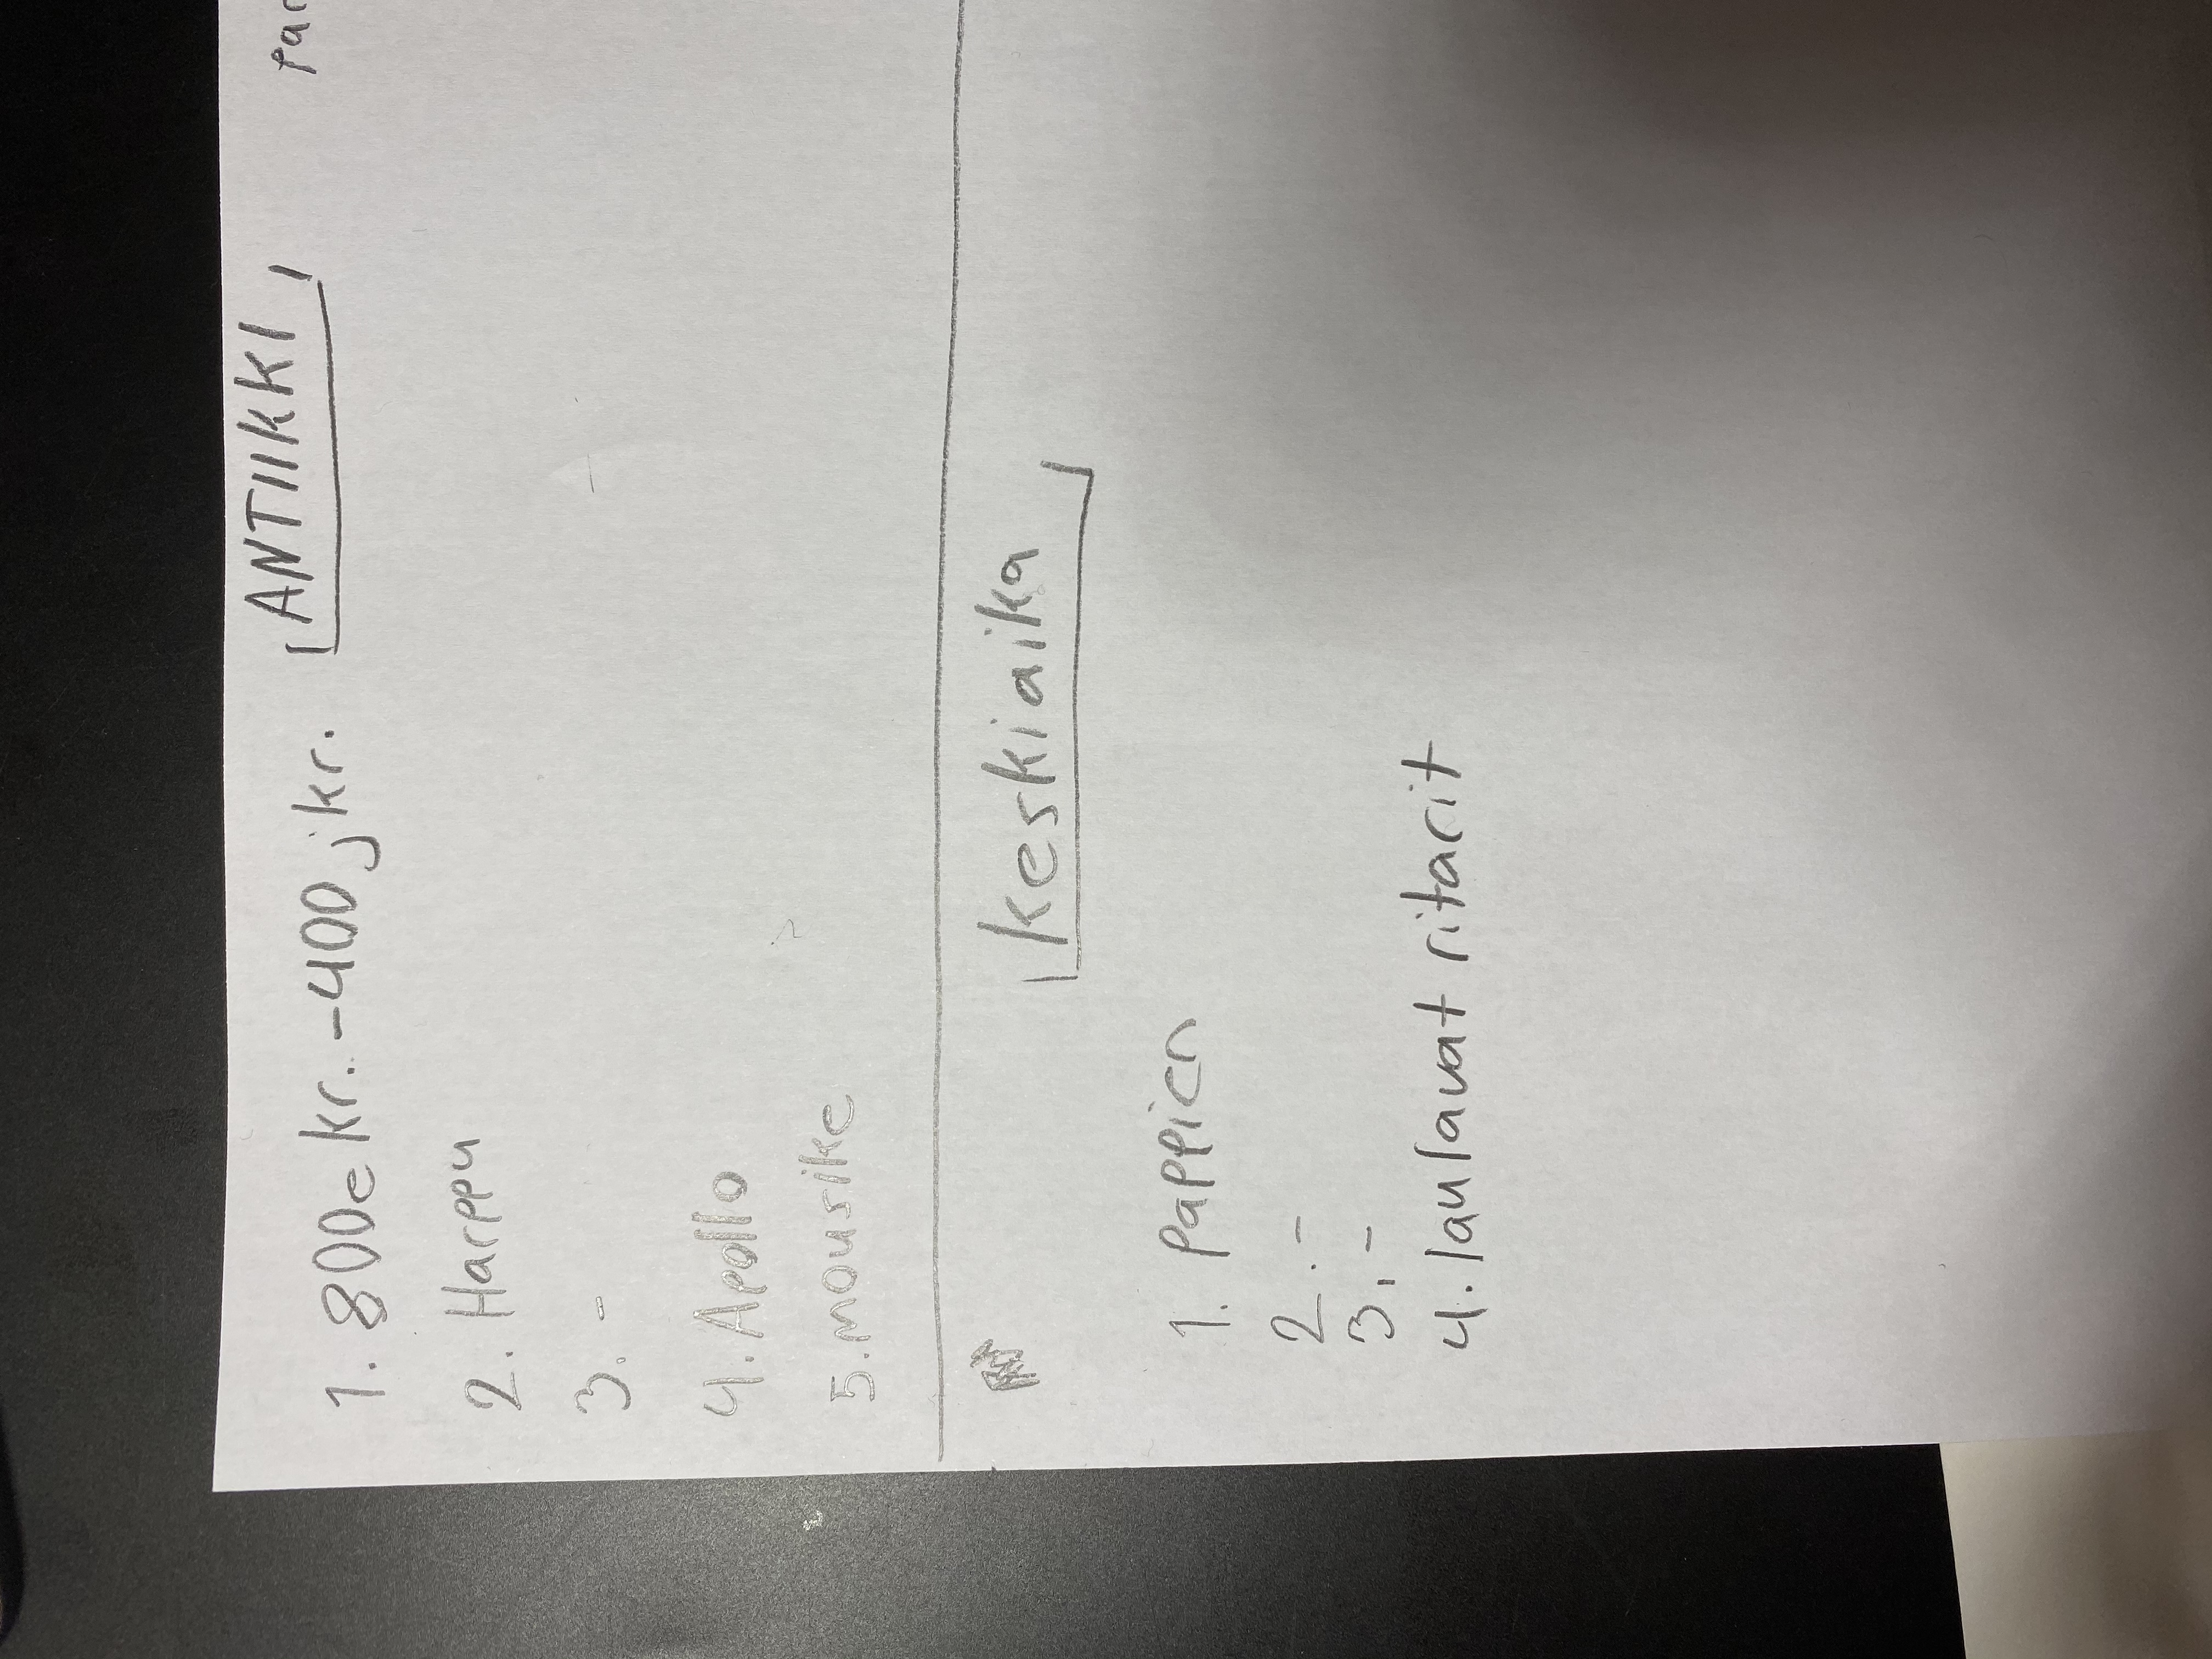 ANTIIKKI
1. 800ekr.-400jkr.
2. Harppu
3. -
4. Apollo
5. mousike
keskiaika
1. Pappien
2. -
3. -
4. laulavat ritarit